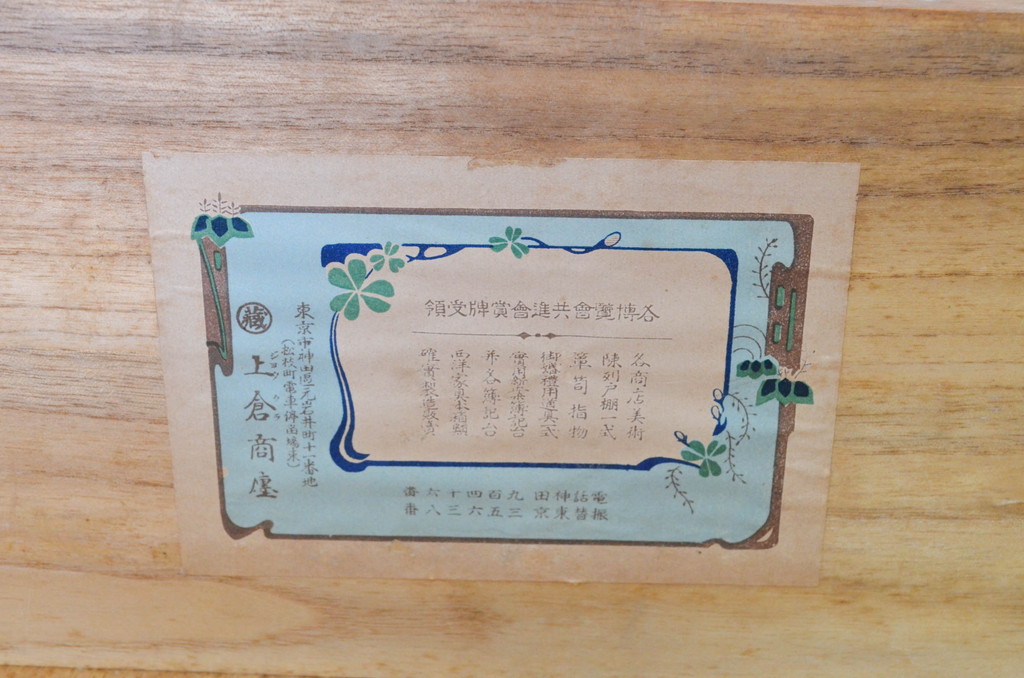 各博覽會共進會賞牌受領
各商店美術
陳列戸棚一式
簞笥指物
御婚禮用道具一式
實用新案簿記台
西洋家具
確實製造販賣
東京市神田區元岩井町十一番地
(松枝町電車停留場東)
藏
上倉商廛
電話神田九百四十六番
振替東京三五六三八番